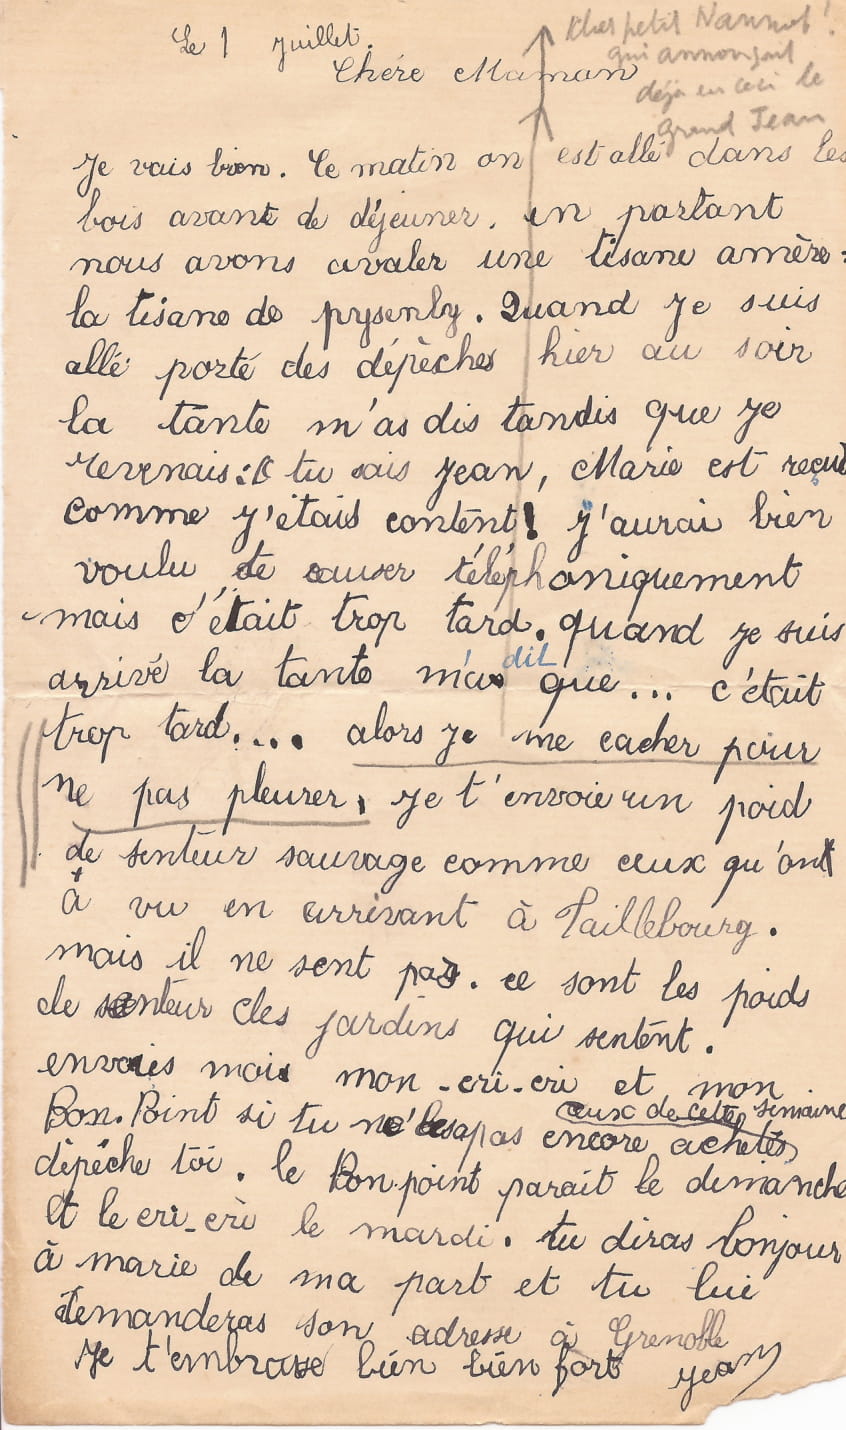 Le 1 Juillet.
Cher petit Nannot !
qui annonçait
déjà en ceci le
Grand Jean
Chére Maman
Je vais bien. Ce matin on est allé dans les
bois avant de déjeuner. en partant
nous avons avaler une tisane amère :
la tisane de . Quand je suis
allé porté des dépèches hier au soir
la tante m'as dis tandis que je
revenais : O tu sais Jean, Marie est reçue
comme j'étais content ! j'aurai bien
voulu te causer téléphoniquement
mais c'était trop tard. quand je suis
arrivé la tante m'as dit que... c'était
trop tard.... alors je me cacher pour
ne pas pleurer. Je t'envoie un poid
de senteur sauvage comme ceux qu'ont
à vu en arrivant à Taillebourg.
mais il ne sent pas. ce sont les poids
de senteur des jardins qui sentent.
envoies mois mon cri-cri et mon
Bon-Point si tu pas encore achetés
ceux de cette semaine
dépéche toi. le Bon-point parait le dimanche
Et le cri-cri le mardi. tu diras bonjour
à marie de ma part et tu lui
demanderas son adresse à Grenoble
Je t'embrasse bién bién fort Jean